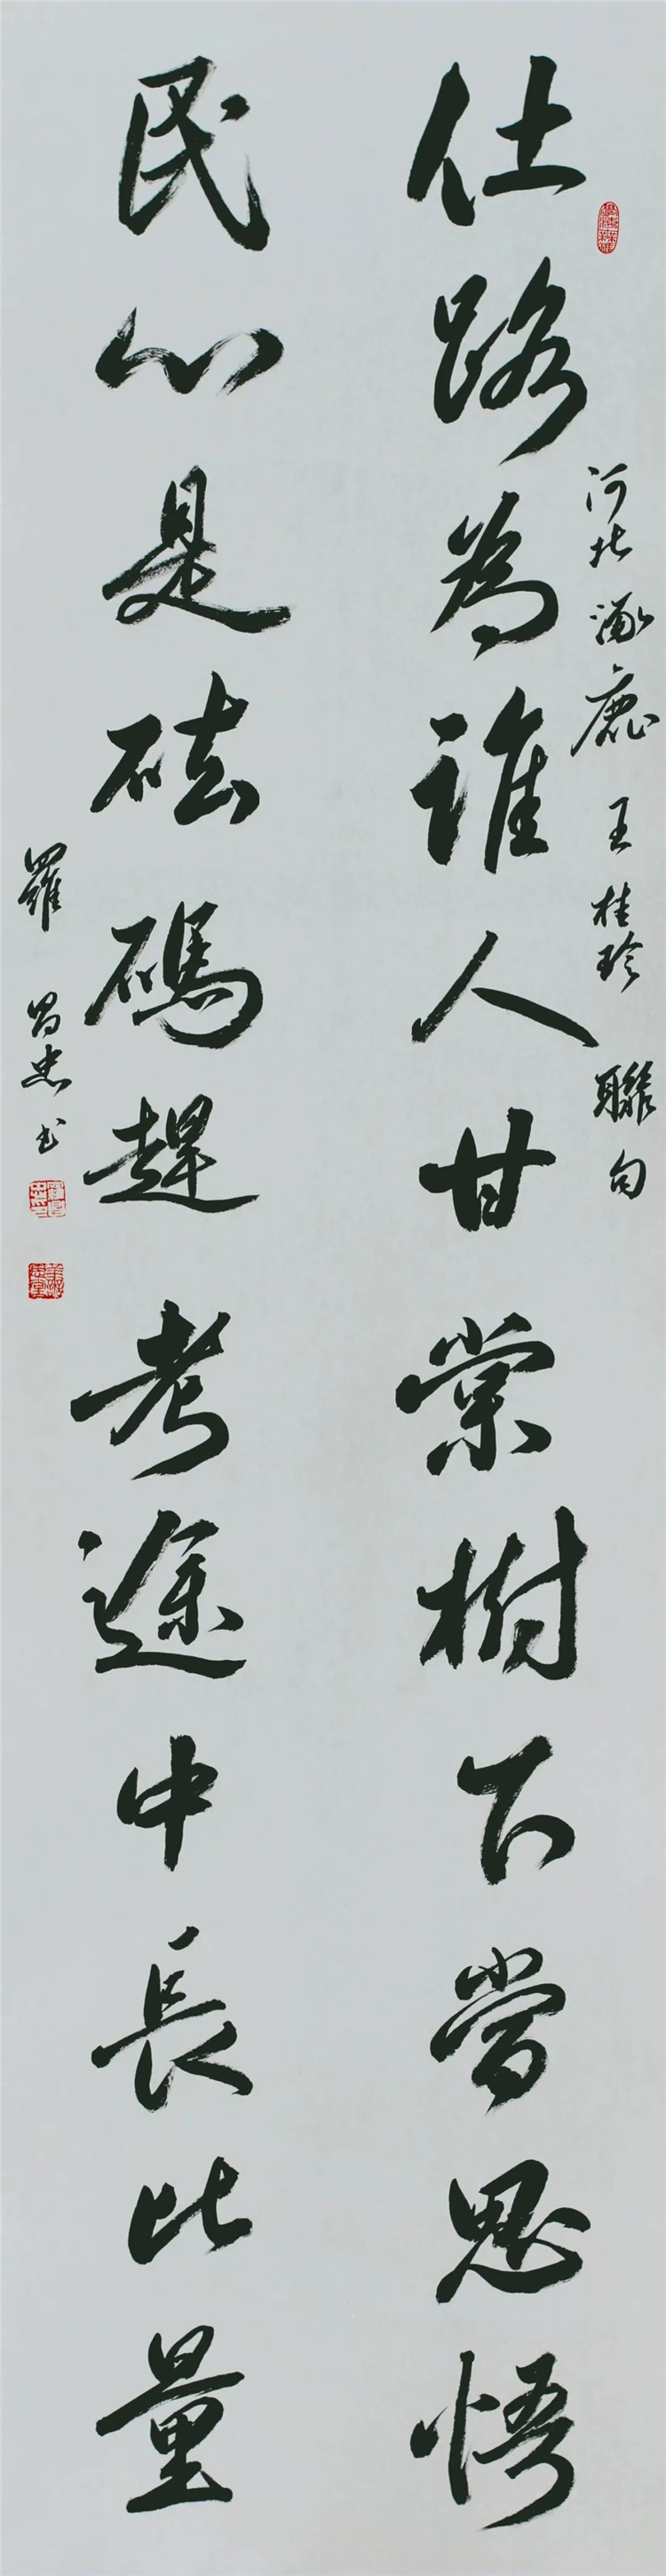 河北涿鹿王桂珍聯句
仕路為誰人甘棠樹下常思悟
民心是砝碼趕考途中長比量
羅昌忠书